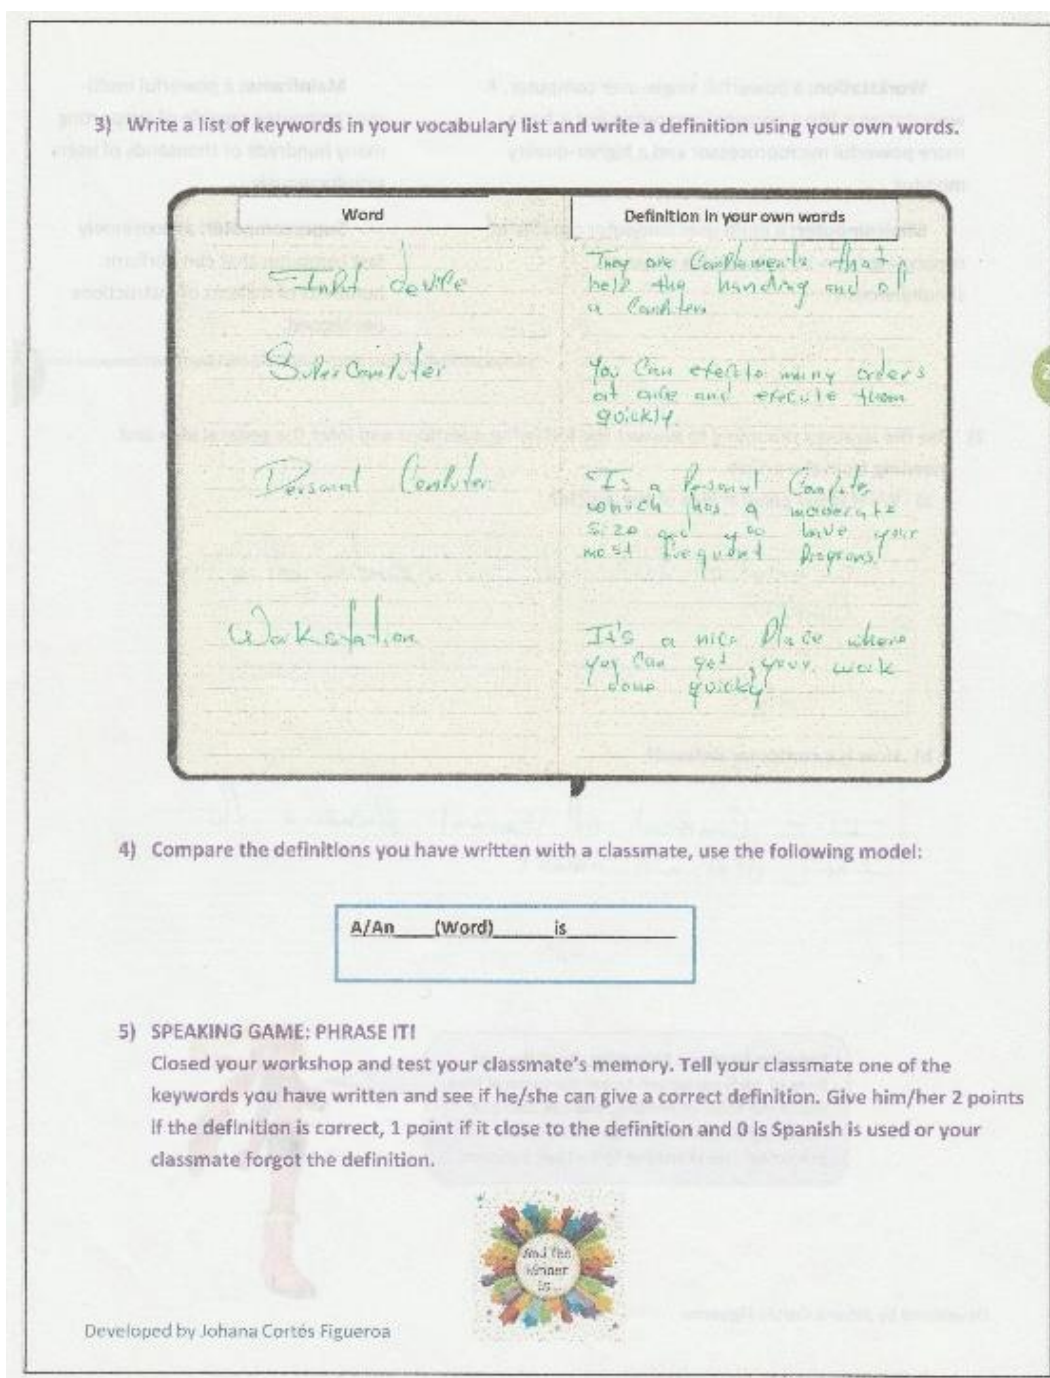 3) Write a list of keywords in your vocabulary list and write a definition using your own words.
Word
Definition in your own words
Input device
They are Complements that
help the handing and of
a Computer
Supercomputer
You Can execute many orders
at once and execute them
quickly.
Personal Computer
Is a Personal Computer
which has a moderate
size and you have your
most frequent programs
Workstation
It's a nice Place where
you can get your work
done quickly
4) Compare the definitions you have written with a classmate, use the following model:
A/An____(Word)______is____________
5) SPEAKING GAME: PHRASE IT!
Closed your workshop and test your classmate's memory. Tell your classmate one of the
keywords you have written and see if he/she can give a correct definition. Give him/her 2 points
if the definition is correct, 1 point if it close to the definition and 0 is Spanish is used or your
classmate forgot the definition.
And the
winner
is...
Developed by Johana Cortés Figueroa